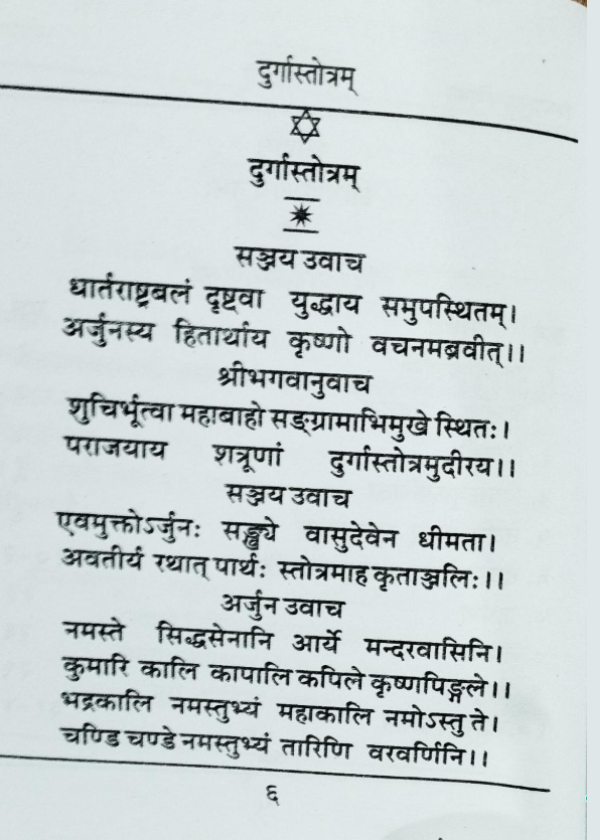 दुर्गास्तोत्रम्
दुर्गास्तोत्रम्
सञ्जय उवाच
धार्तराष्ट्रबलं दृष्टवा युद्धाय समुपस्थितम्।
अर्जुनस्य हितार्थाय कृष्णो वचनमब्रवीत्।।
श्रीभगवानुवाच
शुचिर्भूत्वा महाबाहो सङ्ग्रामाभिमुखे स्थितः।
पराजयाय शत्रूणां दुर्गास्तोत्रमुदीरय।।
सञ्जय उवाच
एवमुक्तोऽर्जुनः सङ्ख्ये वासुदेवेन धीमता।
अवतीर्य रथात् पार्थः स्तोत्रमाह कृताञ्जलिः।।
अर्जुन उवाच
नमस्ते सिद्धसेनानि आर्ये मन्दरवासिनि।
कुमारि कालि कापालि कपिले कृष्णपिङ्गले।।
भद्रकालि नमस्तुभ्यं महाकालि नमोऽस्तु ते।
चण्डि चण्डे नमस्तुभ्यं तारिणि वरवर्णिनि।।
६